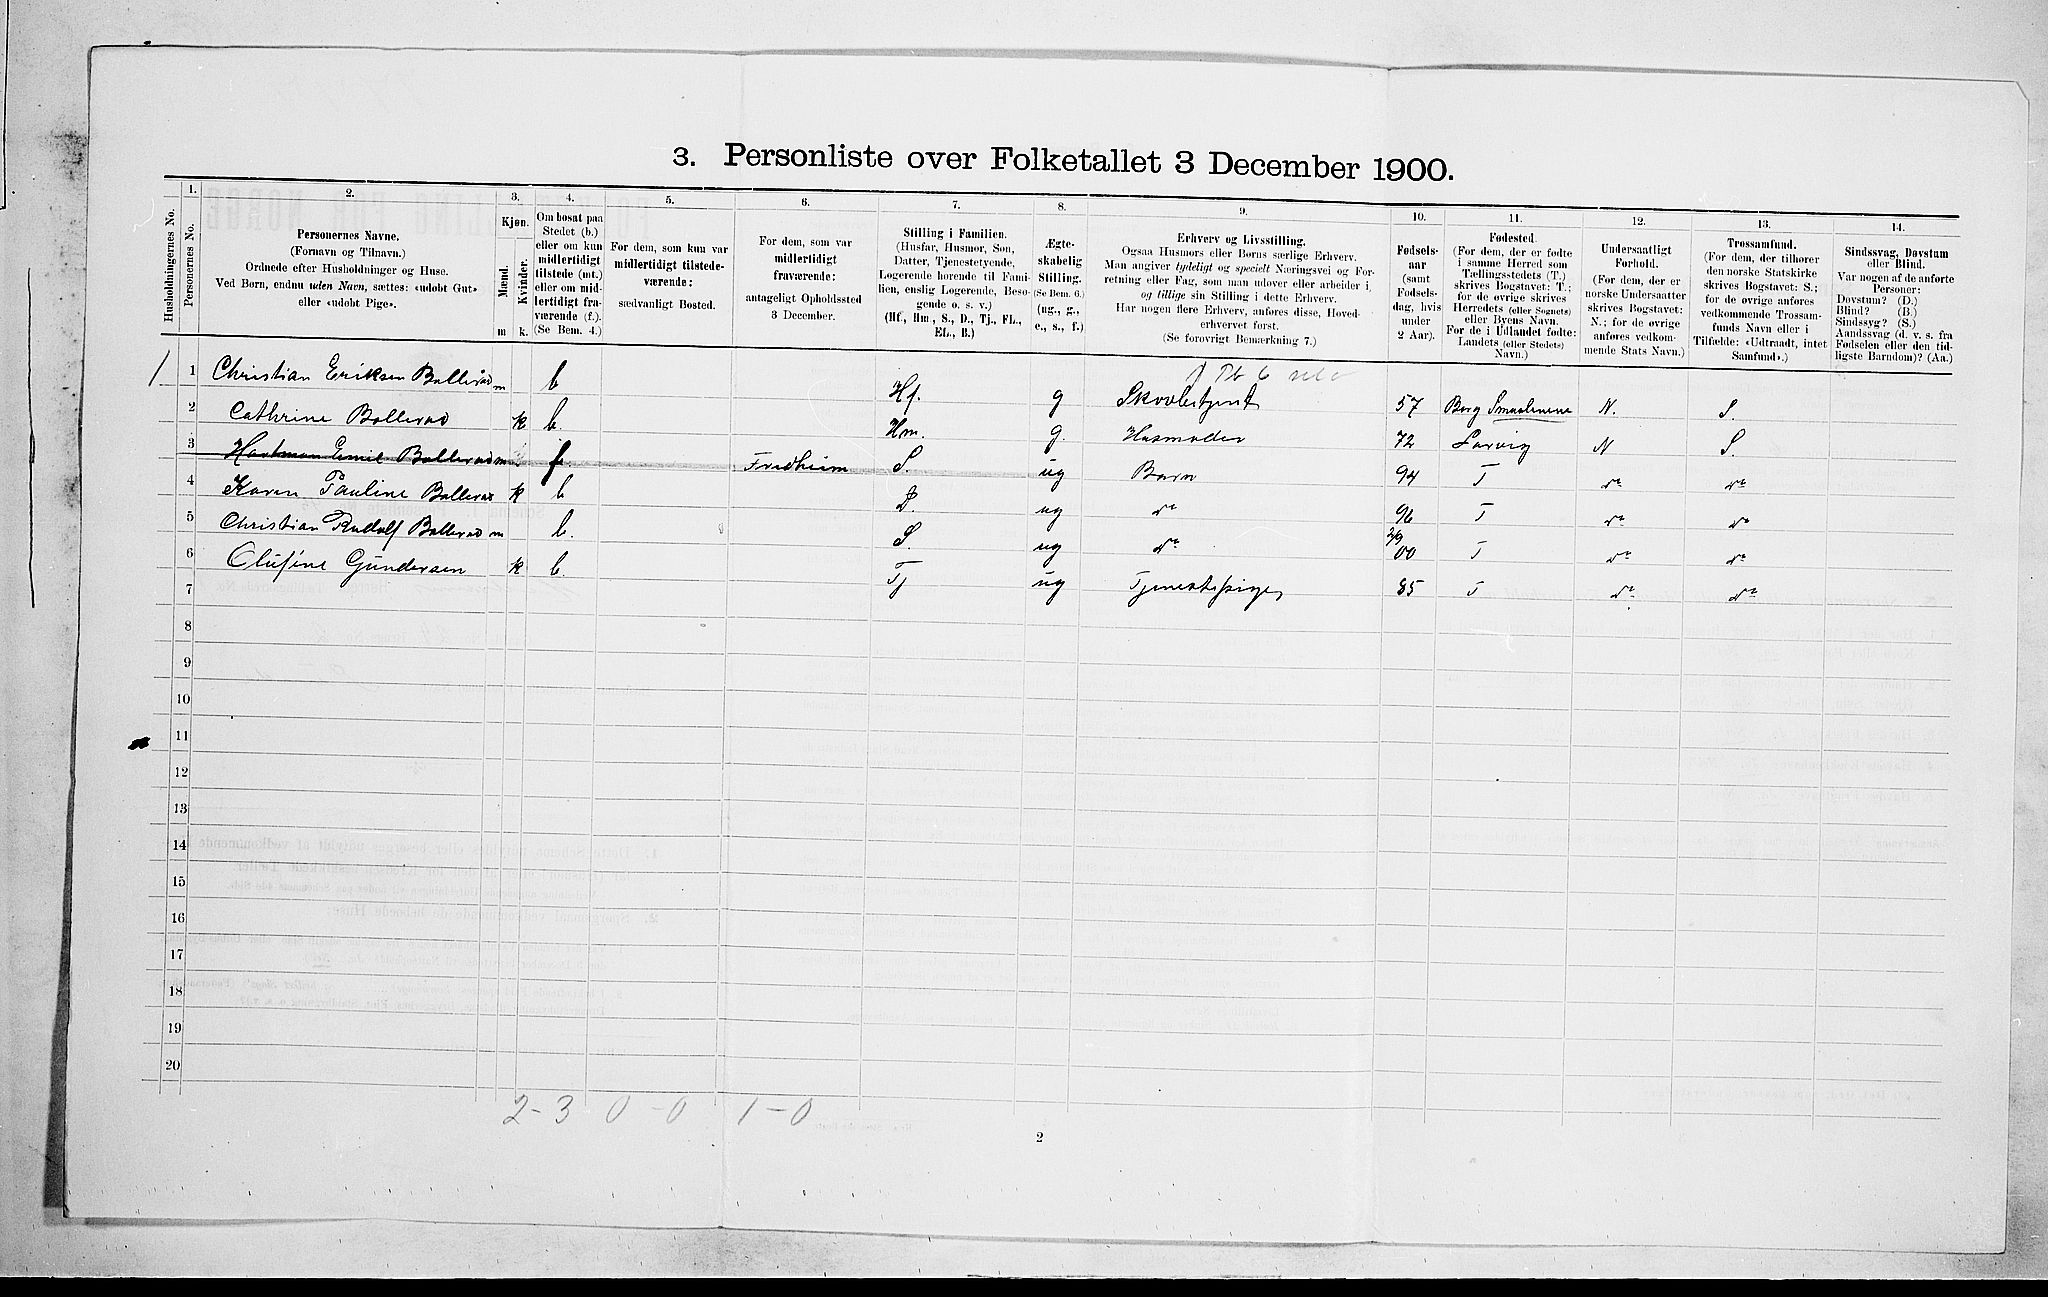 3. Personliste over Folketallet 3 December 1900.
Husholdningernes No.
1.
Personernes No.
2.
Personernes Navne.
(Fornavn og Tilnavn.)
Ordnede efter Husholdninger og Huse.
Ved Børn, endnu uden Navn, sættes: «udøbt Gut»
eller «udøbt Pige».
3.
Kjøn.
Mænd.
Kvinder.
m k.
4.
Om bosat paa
Stedet (b.)
eller om kun
midlertidigt
tilstede (mt.)
eller om mid-
lertidigt fra-
værende (f.).
(Se Bem. 4.)
5.
For dem, som kun var
midlertidigt tilstede-
værende:
sædvanligt Bosted.
6.
For dem, som var
midlertidigt
fraværende:
antageligt Opholdssted
3 December.
7.
Stilling i Familien.
(Husfar, Husmor, Søn,
Datter, Tjenestetyende,
Logerende hørende til Fami-
lien, enslig Logerende, Besø-
gende o. s. v.)
(Hf., Hm., S., D., Tj., FL.,
EL., B.)
8.
Ægte-
skabelig
Stilling.
(Se Bem. 6.)
(ug., g.,
e., s., f.)
9.
Erhverv og Livsstilling.
Ogsaa Husmors eller Børns særlige Erhverv.
Man angiver tydeligt og specielt Næringsvei og For-
retning eller Fag, som man udøver eller arbeider i,
og tillige sin Stilling i dette Erhverv.
Har nogen flere Erhverv, anføres disse, Hoved-
erhvervet først.
(Se forøvrigt Bemærkning 7.)
10.
Fødsels-
aar
(samt
Fødsels-
dag, hvis
under
2 Aar).
11.
Fødested.
(For dem, der er fødte
i samme Herred som
Tællingsstedets (T.)
skrives Bogstavet: T.;
for de øvrige skrives
Herredets (eller Sognets)
eller Byens Navn.
For de i Udlandet fødte:
Landets (eller Stedets)
Navn.)
12.
Undersaatligt
Forhold.
(For dem, der er
norske Undersaatter
skrives Bogstavet:
N.; for de øvrige
anføres vedkom-
mende Stats Navn.)
13.
Trossamfund.
(For dem, der tilhører
den norske Statskirke
skrives Bogstavet: S.;
for de øvrige anføres
vedkommende Trossam-
funds Navn eller i
Tilfælde: «Udtraadt, intet
Samfund».)
14.
Sindssvag, Døvstum
eller Blind.
Var nogen af de anførte
Personer:
Døvstum? (D.)
Blind? (B.)
Sindssyg? (S.)
Aandssvag (d. v. s. fra
Fødselen eller den tid-
ligste Barndom)? (Aa.)
1 1 Christian Eriksen Bollerød m b Hf. g Skovbetjent 57 Berg Smaalenene N. S.
2 Cathrine Bollerød k b. Hm. g. Husmoder 72 Larvig N S.
3 Hartman Emil Bollerød m. f. Fredheim S. ug Barn 94 T do do
4 Karen Pauline Bollerød k b D. ug do 96 T do do
5 Christian Rudolf Bollerød m b. S. ug do 2/9 00 T do do
6 Olufine Gundersen k b. Tj ug Tjenestepige 85 T do do
7
8
9
10
11
12
13
14
15
16
17
18
19
20
2-3 0-0 1-0
2